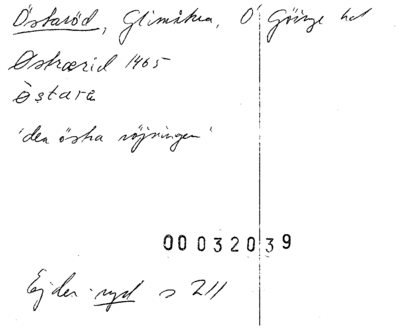 Östaröd, Glimåkra, Ö Göinge hd
Østærid 1465
Östara
'den östra röjningen'
00032039
Ejder-ryd s 211